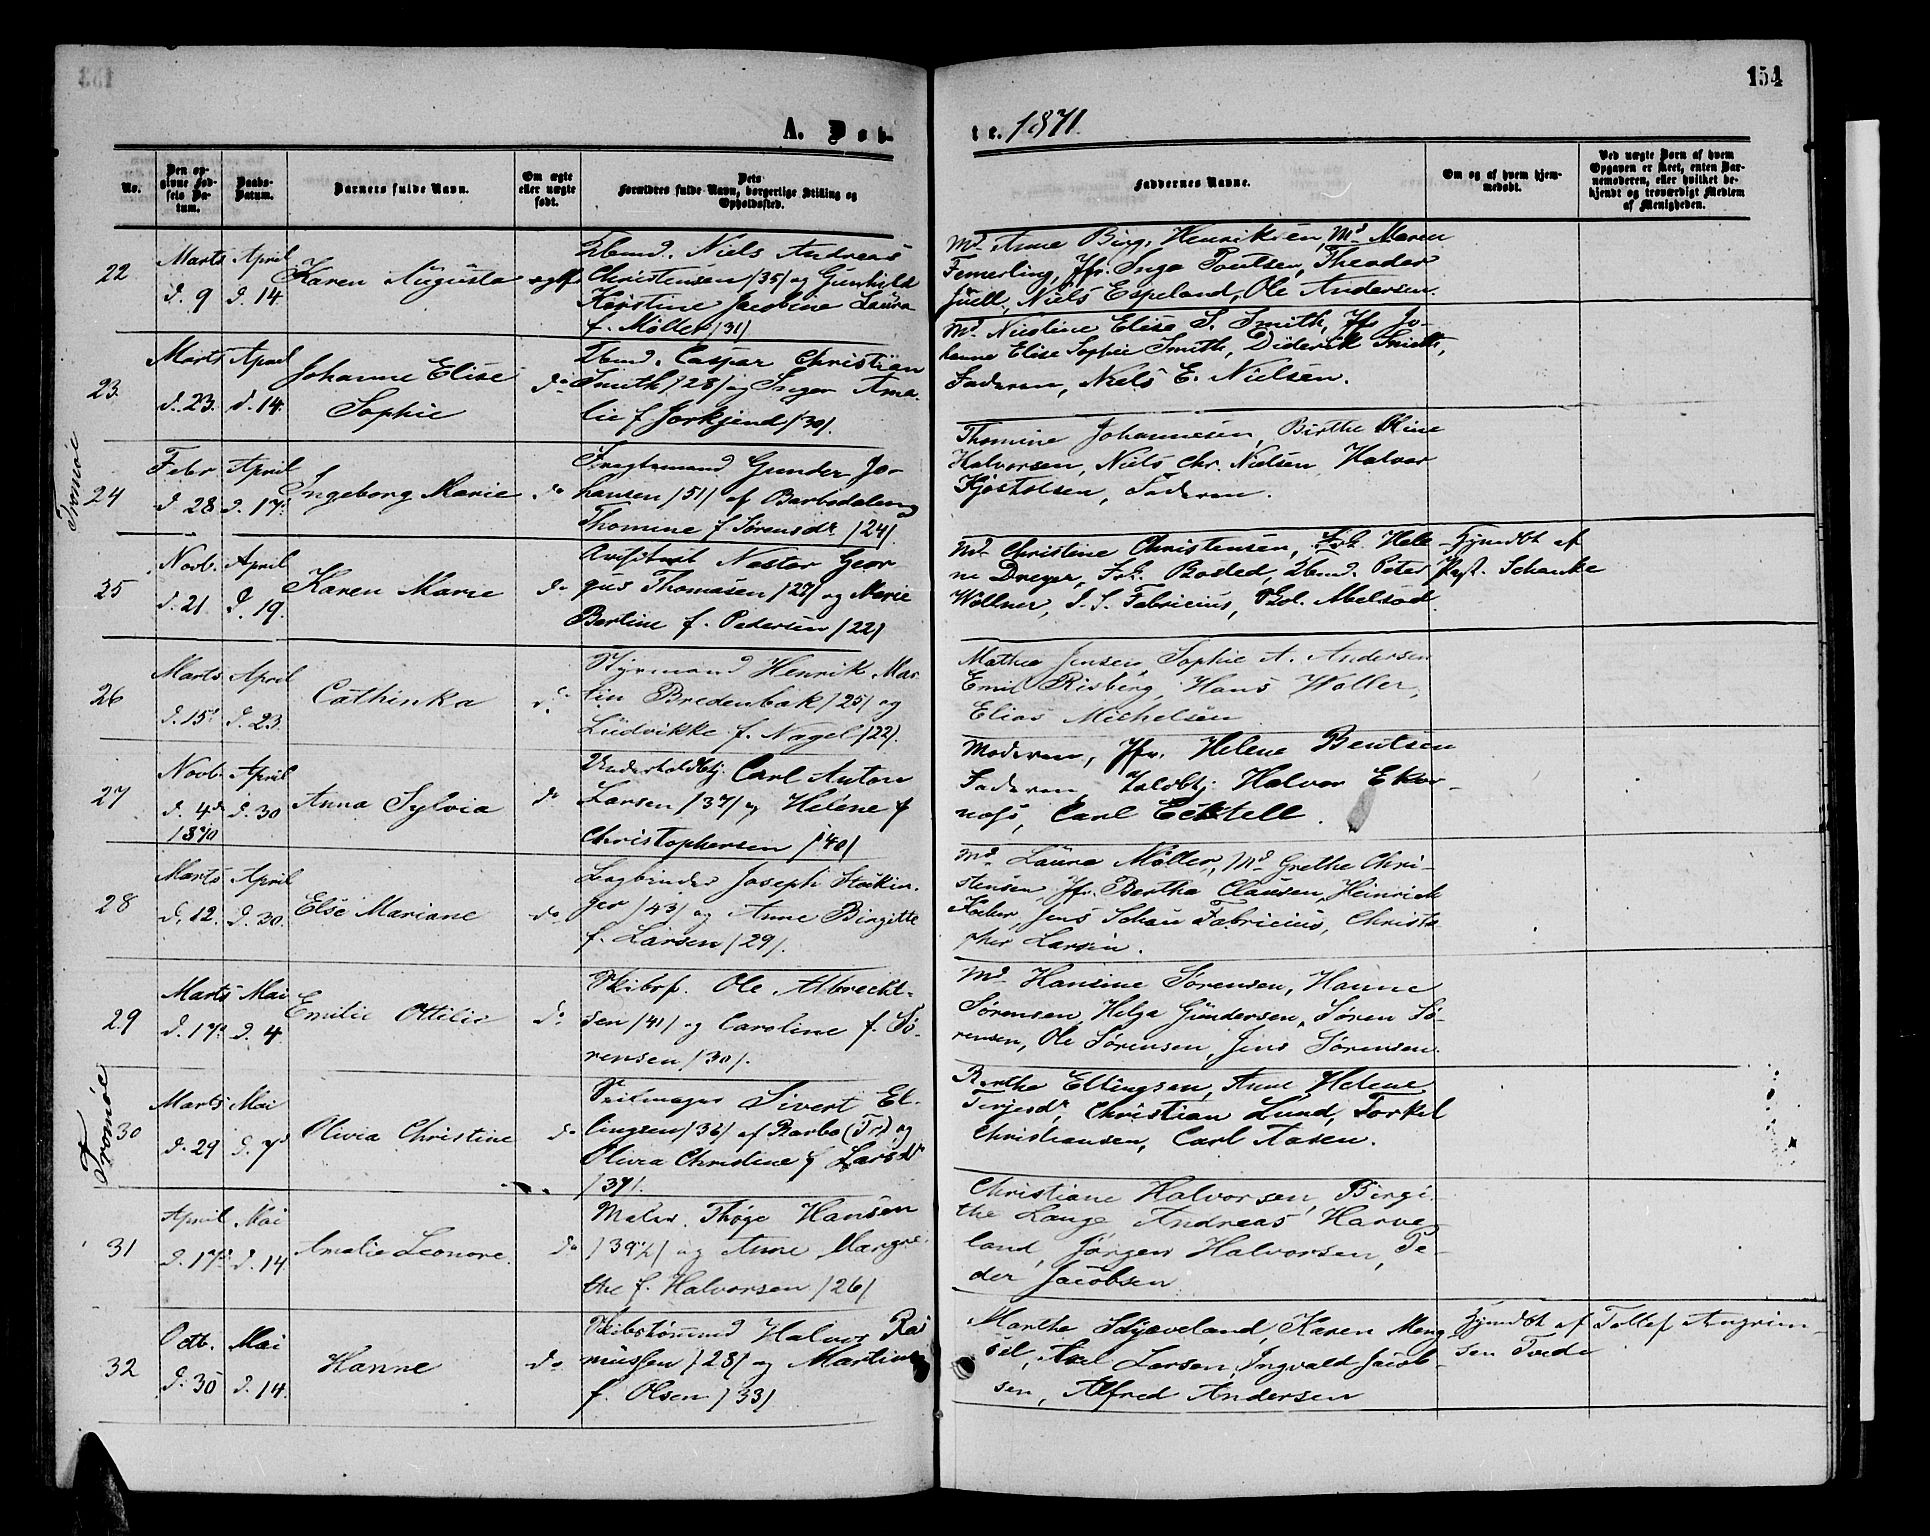 154
A. Døb-
te. 1871.
No.
Den op-
givne Fød-
sels Da-
tum.
Daabs-
Datum.
Barnets fulde Navn.
Om ægte
eller uægte
født.
Dets
Forældres fulde Navn, borgerlige Stilling og
Opholdssted.
Faddernes Navne.
Om og af hvem hjem-
medøbt.
Ved uægte Barn af hvem
Opgaven er skeet, enten Bar-
nemoderen, eller hvilket be-
kjendt og troværdigt Medlem
af Menigheden.
22
Marts
d. 9
April
d. 14.
Karen Augusta
ægte
Tbmd. Niels Andreas
Christensen /35/ og Gunhild
Kirstine Jacobine Laura
f. Møller /31/
Md. Anne Birg. Henriksen, Md. Maren
Femerling, Jfr. Inga Poulsen, Theodor
Juell, Niels Espeland, Ole Andersen.
23.
Marts
d. 23.
April
d. 14.
Johanne Elise
Sophie
do
Tbmd. Caspar Christian
Smith /28/ og Inger Ama-
lie f. Jorkjend /30/.
Md. Nicoline Elise S. Smith, Jfr Jo-
hanne Elise Sophie Smith, Diderik Smith,
Faderen, Niels E. Nielsen.
Tromøe
24
Febr
d. 28
April
d. 17.
Ingeborg Marie
do
Fragtemand Gunder Jo-
hansen /51/ af Barbodalen og
Thomine f. Sørensdr. /24/.
Thomine Johannesen, Birthe Oline
Halvorsen, Niels Chr. Nielsen Halvor
Kjøstolsen, Faderen.
25
Novb.
d. 21.
April
d. 19.
Karen Marie
do
Nestor Geor
gius Thomasen /27/ og Marie
Bertine f. Pedersen /22/
Md. Christine Christensen, Frk. Hele
ne Dreyer, Frk. Bosted, Tbmd. Peter
Wollner, I. S. Fabricius,
Hjemdbt af
Past. Schanke
26
Marts
d. 15.
April
d. 23.
Cathinka
do
Styrmand Henrik Mar
tin Bredenbak /25/ og
Ludvikke f. Nagel /22/.
Mathea Jensen Sophie A. Andersen
Emil Risberg, Hans Woller,
Elias Michelsen
27
Novb.
d. 4de
1870
April
d. 30
Anna Sylvia
do
Undertoldbtj. Carl Anton
Larsen /37/ og Helene f
Christophersen /40/
Moderen, Jfr. Helene Bentsen
Faderen, Toldbtj. Halvor Ekor-
næss, Carl Ecktell.
28
Marts
d. 12.
April
d. 30.
Else Mariane
do
Bogbinder Joseph Stökin-
ger /43/ og Anne Birgitte
f. Larsen /29/.
Md. Laura Møller, Md. Grethe Chri-
stensen Jfr. Bertha Clausen, Heinrich
Kocher, Jens Schau Fabricius, Christo
pher Larsen.
29
Marts
d. 17.
Mai
d. 4.
Emilie Ottilie
do
Skibsf. Ole Albrecht-
sen /41/ og Caroline f. Sö-
rensen /30/.
Md. Hansine Sørensen, Hanne
Sørensen, Helga Gundersen, Søren Sø-
rensen, Ole Sørensen, Jens Sørensen.
Tromøe
30
Marts
d. 29
Mai
d. 7d
Olivia Christine
do
Seilmager Sivert El-
lingsen /36/ af Barbo (Tr) og
Olivia Christine f. Larsdr
/37/.
Berthe Ellingsen, Anne Helene
Terjesdr, Christian Lund, Torkel
Christiansen, Carl Aasen.
31
April
d. 17.
Mai
d. 14.
Amalie Leonore.
do
Maler. Thøge Hansen
/39½/ og Anne Margre-
the f. Halvorsen /26/
Christiane Halvorsen, Birgi-
the Lange Andreas Harve-
land, Jørgen Halvorsen, Pe-
der Jacobsen
32
Octb.
d. 30
Mai
d. 14.
Hanne
do
Skibstømmd Halvor Ras
mussen /28/ og Martine
f. Olsen /33/
Marthe Skjæveland, Karen Meng
sel, Axel Larsen, Ingvald Jacob-
sen, Alfred Andersen
Hjemdbt af Tollef Angrim-
sen Tvede.